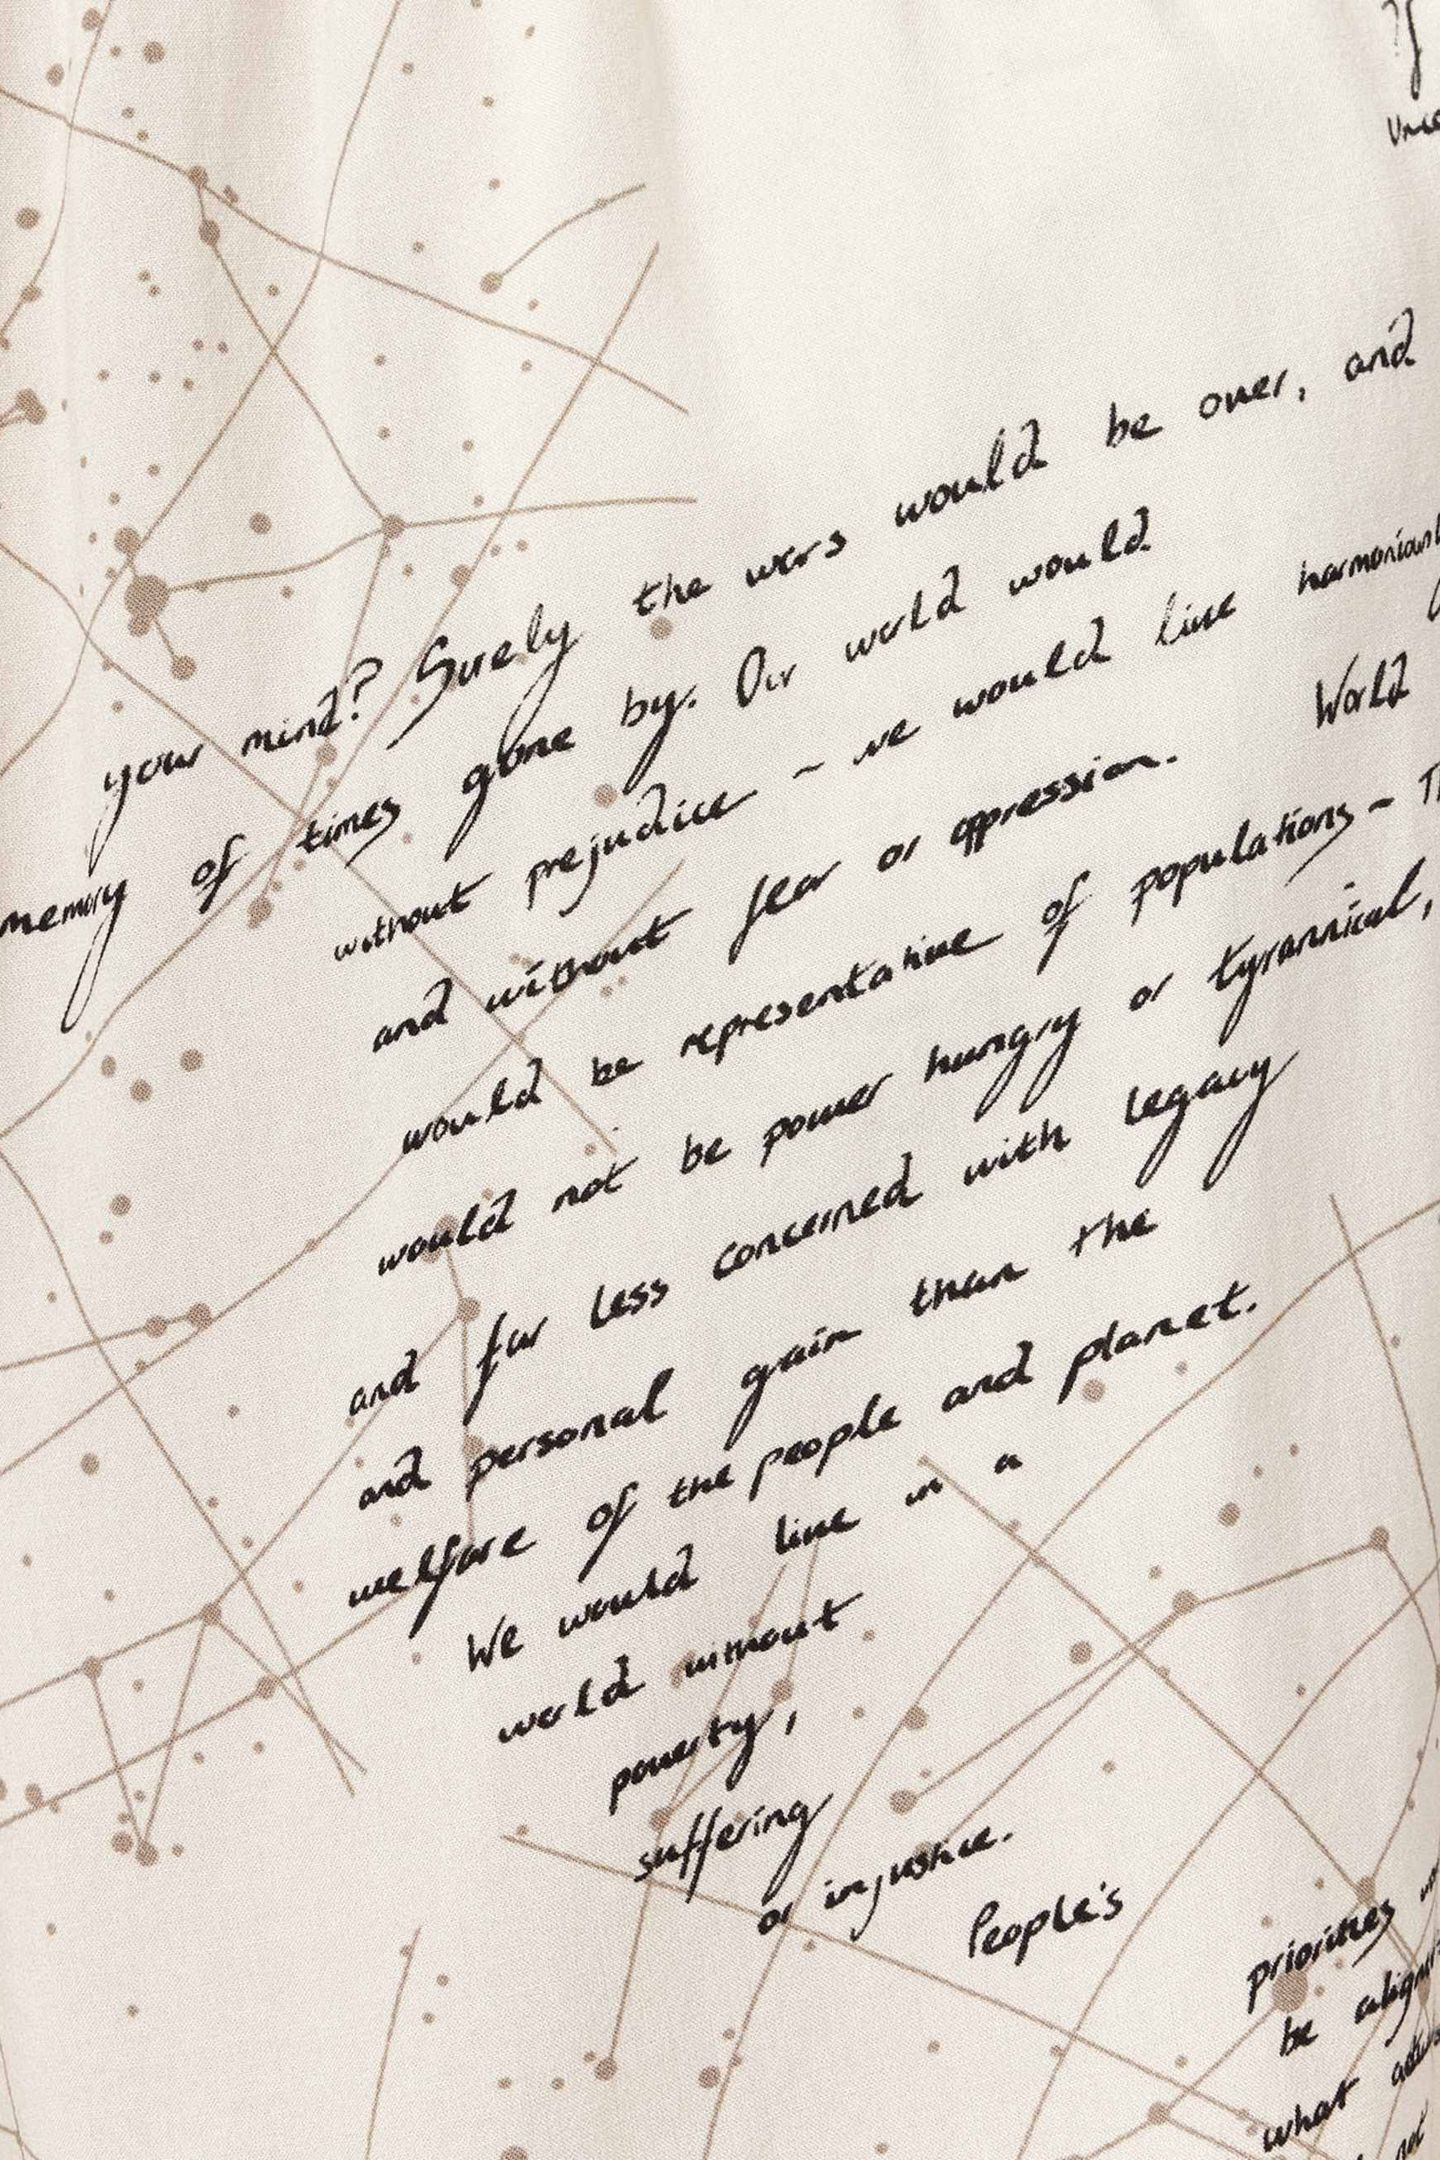 your mind? Surely the wars would be over, and
memory of times gone by. Our world would
without prejudice ~ we would live
and without fear or oppression. World
would be representative of populations ~
would not be power hungry or tyrannical,
and far less concerned with legacy
and personal gain than the
welfare of the people and planet.
We would live in a
world without
poverty,
suffering
or injustice.
People's
priorities
be
what
not